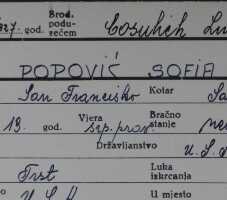 327. god. Brod. podusećem Cosulich Lu
POPOVIĆ SOFIA
San Francisko Kotar Sa
19. god. Vjera srp. prav. Bračno stanje
Državljanstvo U.S.
Trst Luka iskrcanja
U.S.A. U mjesto